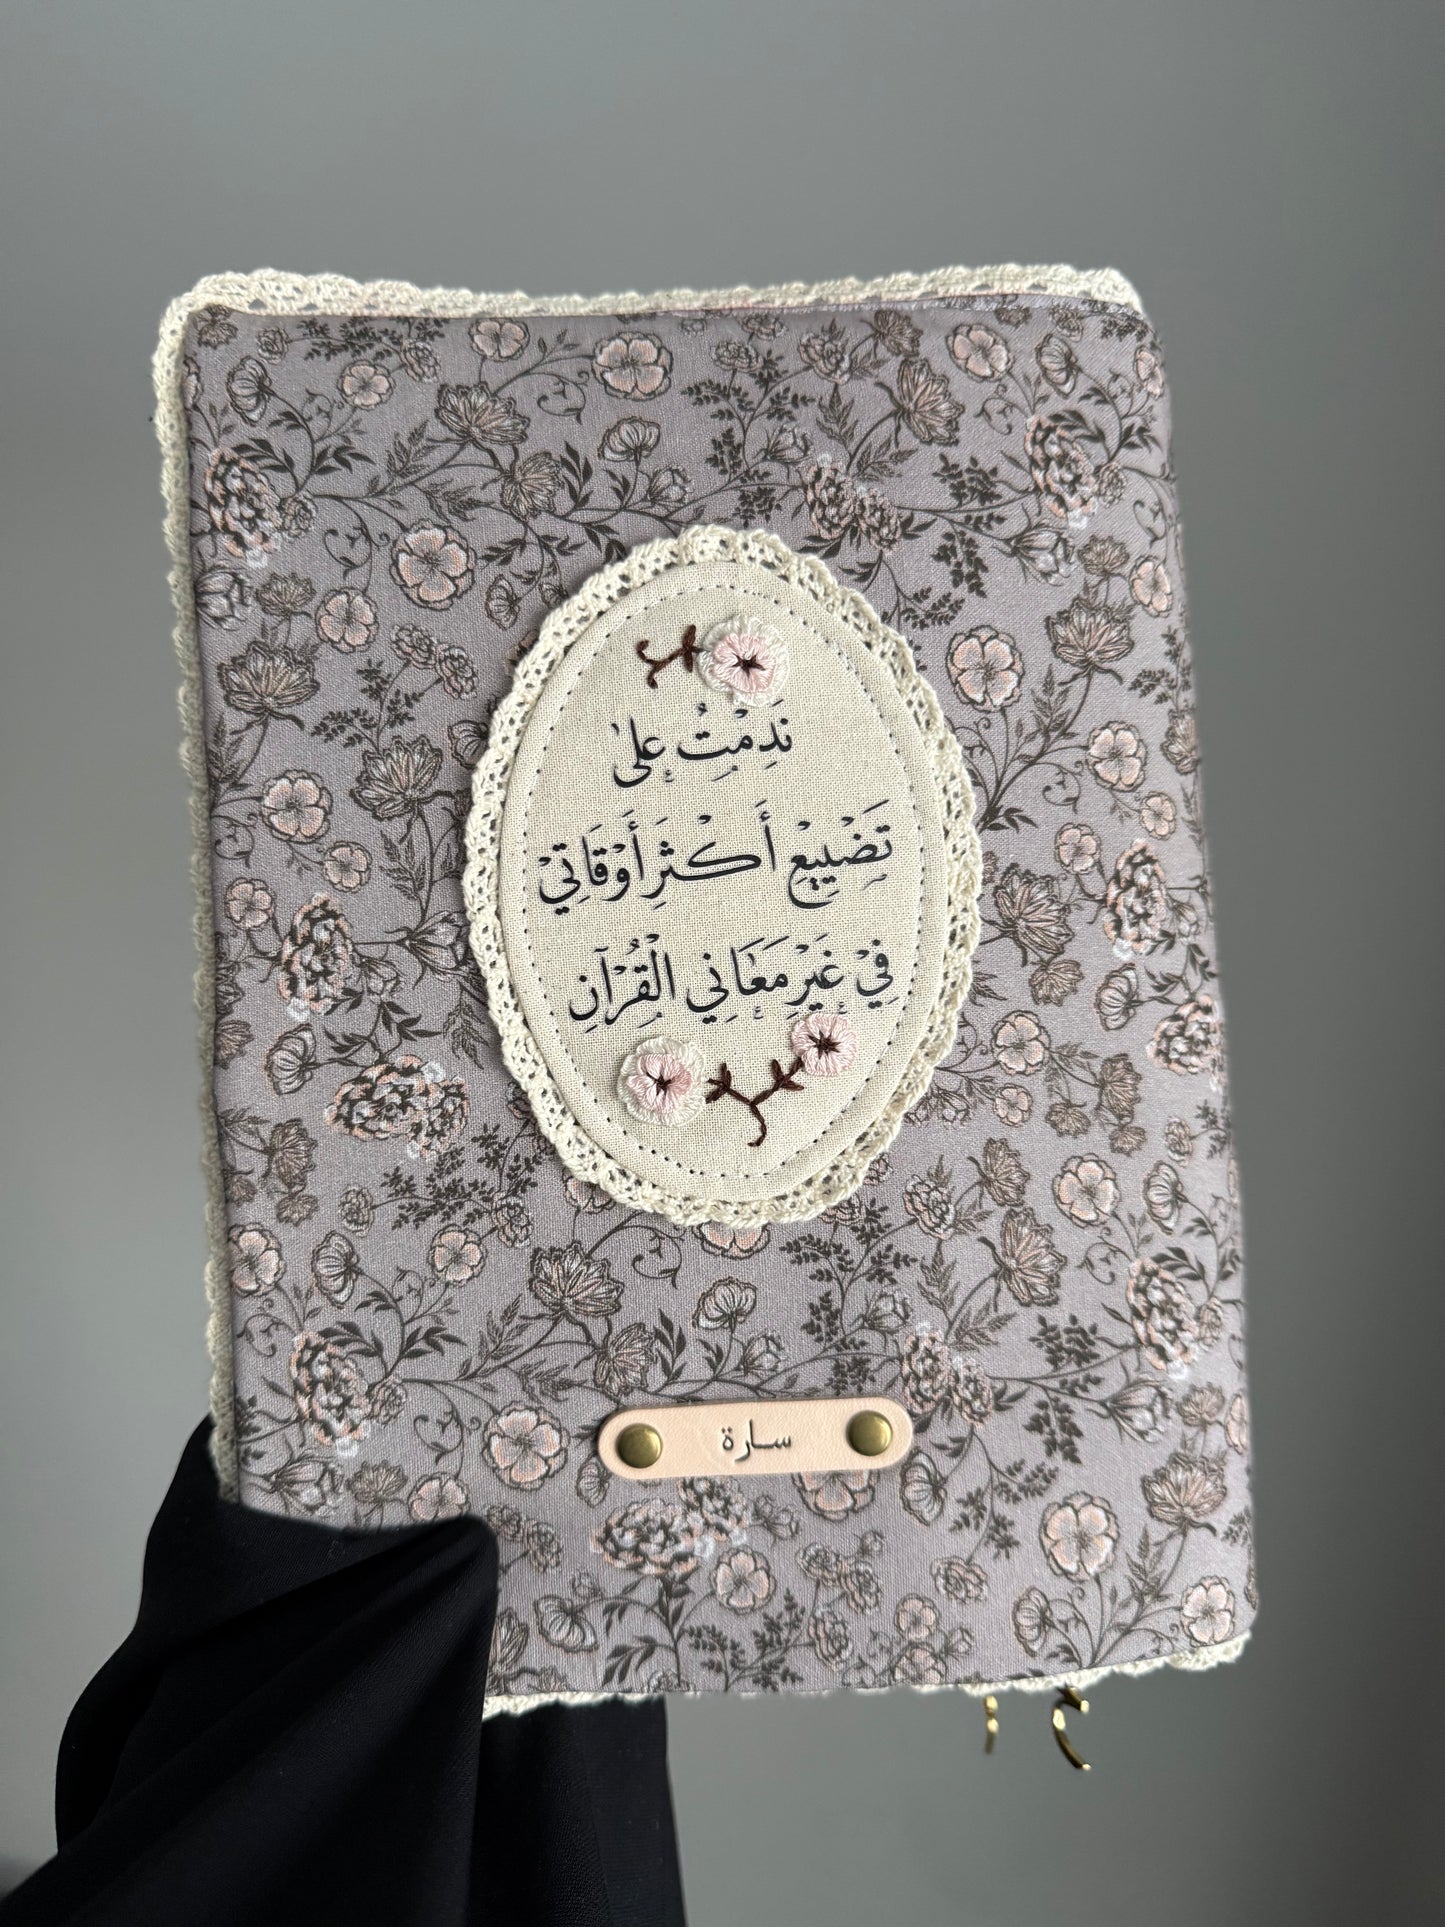 نَدِمْتُ عَلىٰ
تَضْيِيعِ أَكْثَرِ أَوْقَاتِيْ
فِيْ غَيْرِ مَعَانِي الْقُرْآنِ
سارة